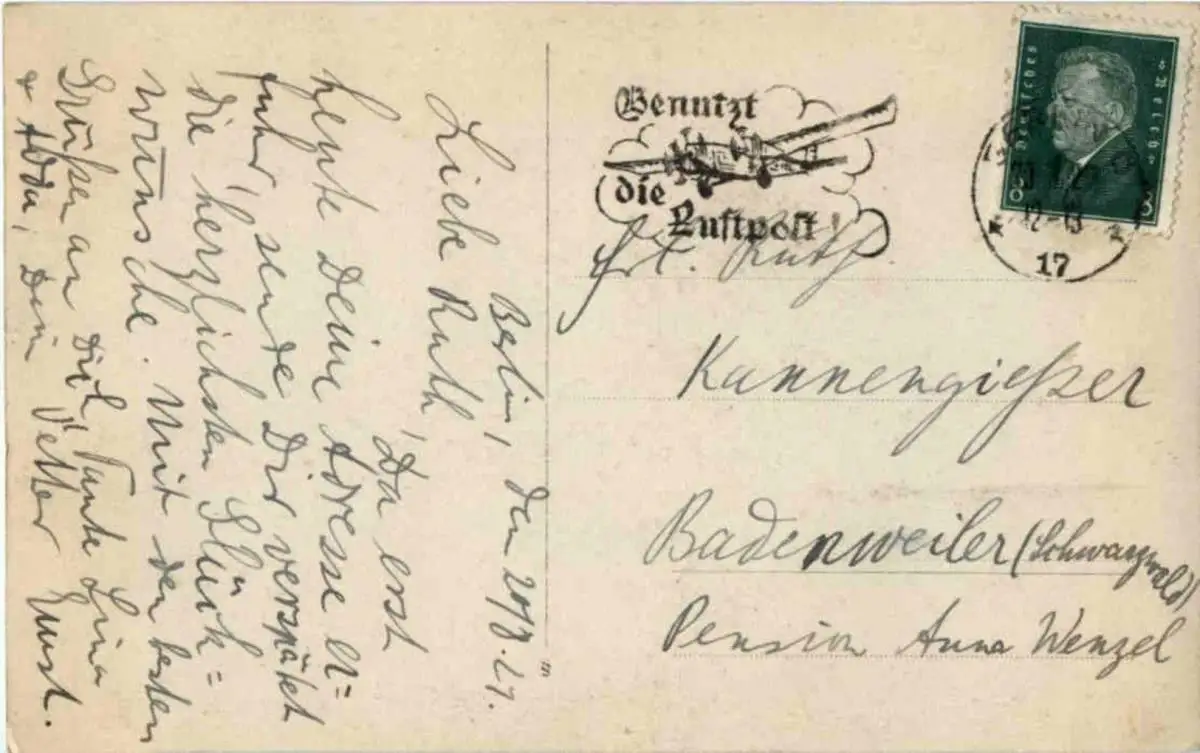 Berlin, den
Liebe Ruth,
Da erst
heute Deine Adresse er=
fuhr, sende Dir verspätet
die herzlichsten Glück=
wünsche. Mit den besten
Grüßen an Dich, Tante Lina
Dein Vetter Ernst.
Benutzt
die
Luftpost!
Deutsches Reich
8 8
12-13
17
Frl. Ruth
Kannengießer
Badenweiler (Schwarzwald)
Pension Anna Wenzel